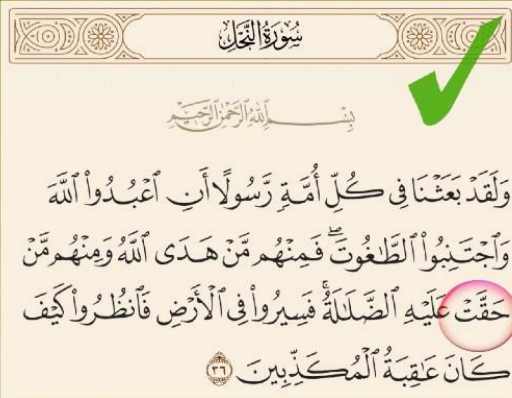 سُورَةُ النَّحۡلِ
بِسۡمِ ٱللَّهِ ٱلرَّحۡمَٰنِ ٱلرَّحِيمِ
وَلَقَدۡ بَعَثۡنَا فِي كُلِّ أُمَّةٖ رَّسُولًا أَنِ ٱعۡبُدُواْ ٱللَّهَ
وَٱجۡتَنِبُواْ ٱلطَّٰغُوتَۖ فَمِنۡهُم مَّنۡ هَدَى ٱللَّهُ وَمِنۡهُم مَّنۡ
حَقَّتۡ عَلَيۡهِ ٱلضَّلَٰلَةُۚ فَسِيرُواْ فِي ٱلۡأَرۡضِ فَٱنظُرُواْ كَيۡفَ
كَانَ عَٰقِبَةُ ٱلۡمُكَذِّبِينَ ٣٦